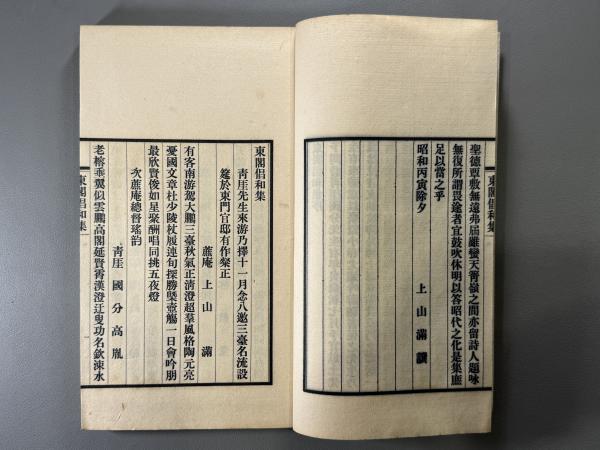 聖德覃敷無遠弗屆雖蠻天瘠嶺之間亦留詩人題咏
無復所謂畏途者宜鼓吹休明以答昭代之化是集應
足以當之乎
昭和丙寅除夕
上山滿識
東閣倡和集
東閣倡和集
靑厓先生來游乃擇十一月念八邀三臺名流設
筵於東門官邸有作槩正
蔗庵 上山滿
有客南游駕大鵬三臺秋氣正淸澄超羣風格陶元亮
憂國文章杜少陵杖履連旬探勝槩壺觴一日會吟朋
最欣賢俊如星聚酬唱同挑五夜燈
次蔗庵總督瑤韵
靑厓 國分高胤
老榕垂翼似雲鵬高閣延賢霽漢澄迂叟功名欽涑水
東閣倡和集
一